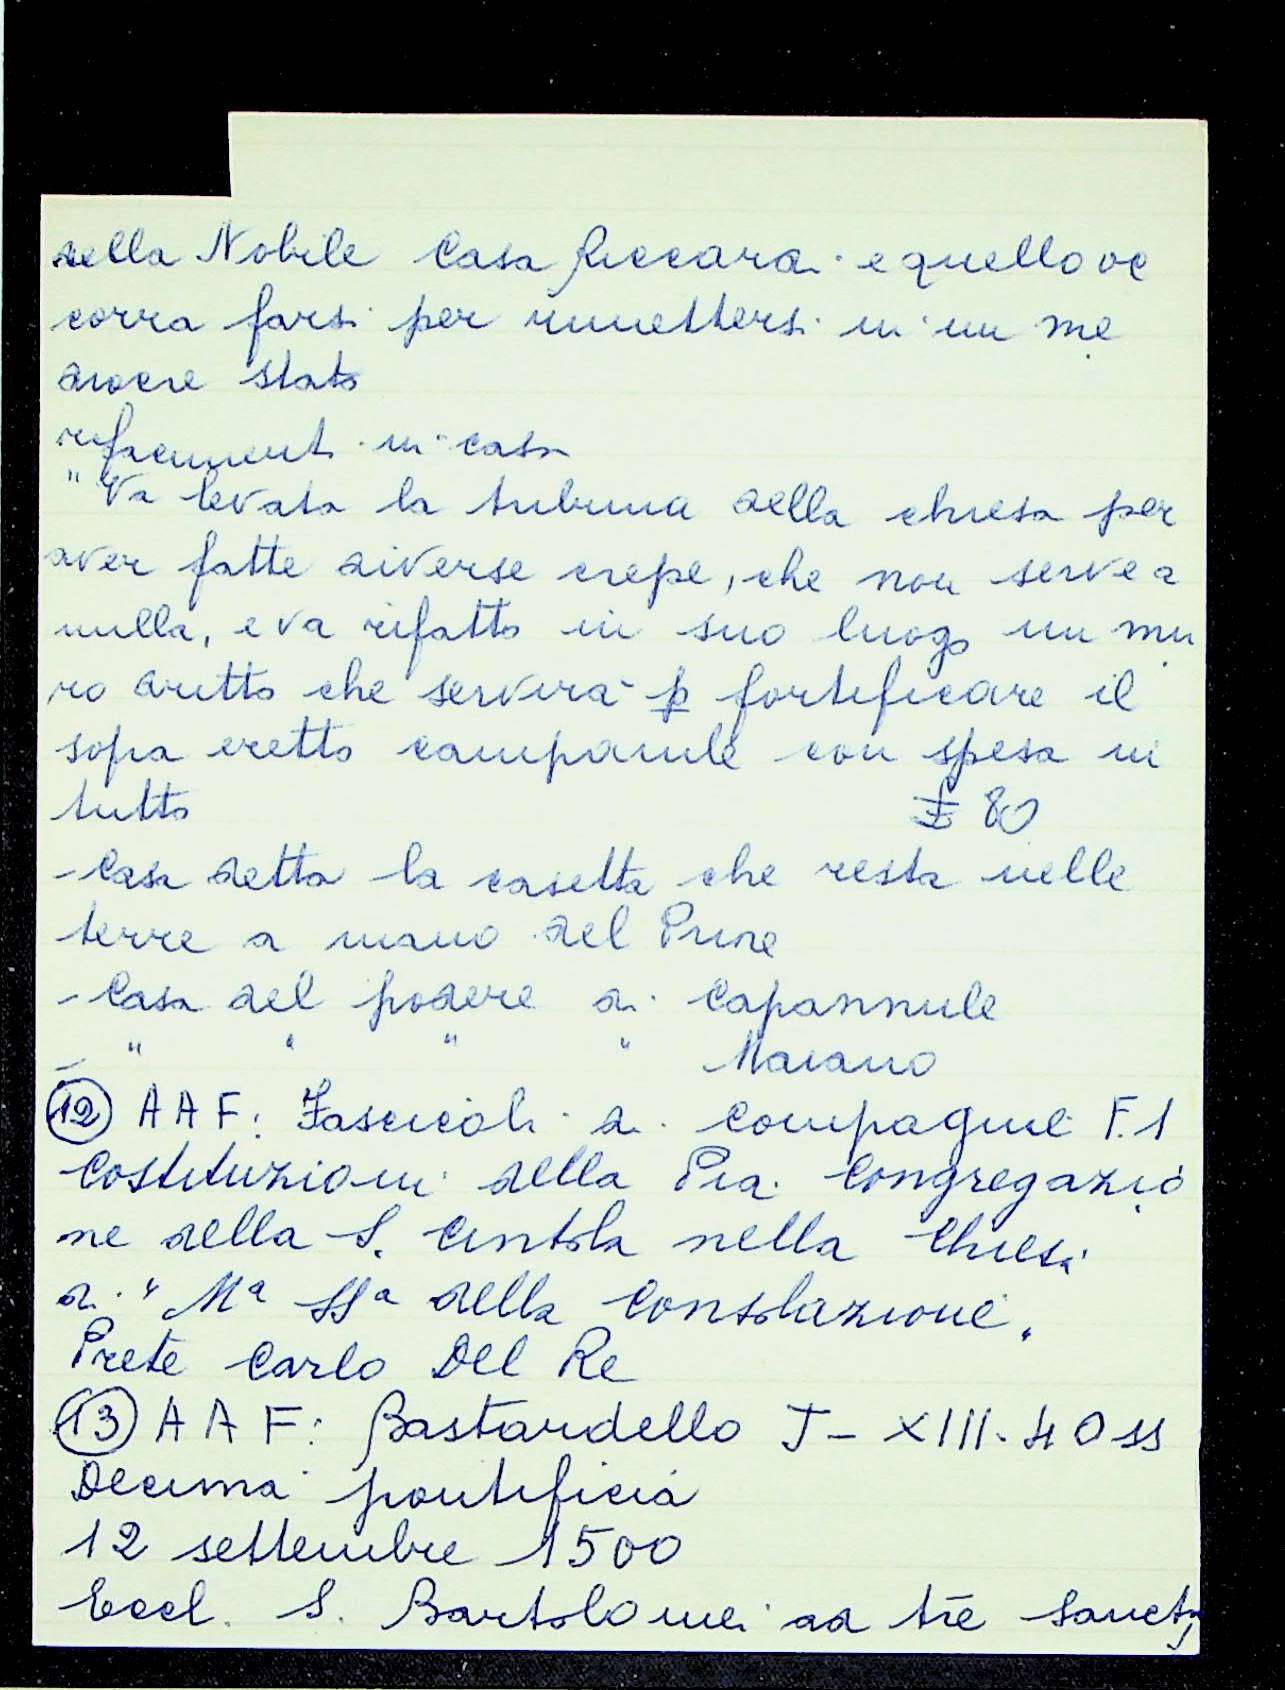 della Nobile Casa Riccardi e quello oc
corra farsi per rimettersi in un me
diocre stato
rifacimenti in casa
"Va levata la tribuna della chiesa per
aver fatte diverse crepe, che non serve a
nulla, e va rifatto in suo luogo un mu
ro dritto che servirà p fortificare il
sopra eretto campanile con spesa in
tutto £ 80
- Casa detta la casetta che resta nelle
terre a mano del Priore
- Casa del podere di Capannule
- " " " " Maiano
12 AAF: Fascicoli di compagnie F.1
Costituzioni della Pia Congregazio
ne della S. Cintola nella Chiesa
di "Mª SSª della Consolazione"
Prete Carlo Del Re
13 AAF: Bastardello J - XIII. 40 ss
Decima pontificia
12 settembre 1500
Eccl. S. Bartolomei ad tre Sancti